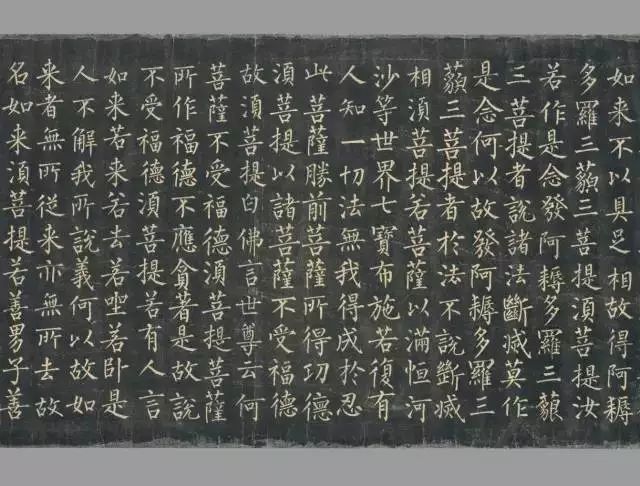 如来不以具足相故得阿耨
多羅三藐三菩提須菩提汝
若作是念發阿耨多羅三藐
三菩提者說諸法斷滅莫作
是念何以故發阿耨多羅三
藐三菩提者於法不說斷滅
相須菩提若菩薩以滿恒河
沙等世界七寶布施若復有
人知一切法無我得成於忍
此菩薩勝前菩薩所得功德
須菩提以諸菩薩不受福德
故須菩提白佛言世尊云何
菩薩不受福德須菩提菩薩
所作福德不應貪著是故說
不受福德須菩提若有人言
如来若来若去若坐若卧是
人不解我所說義何以故如
来者無所從来亦無所去故
名如来須菩提若善男子善